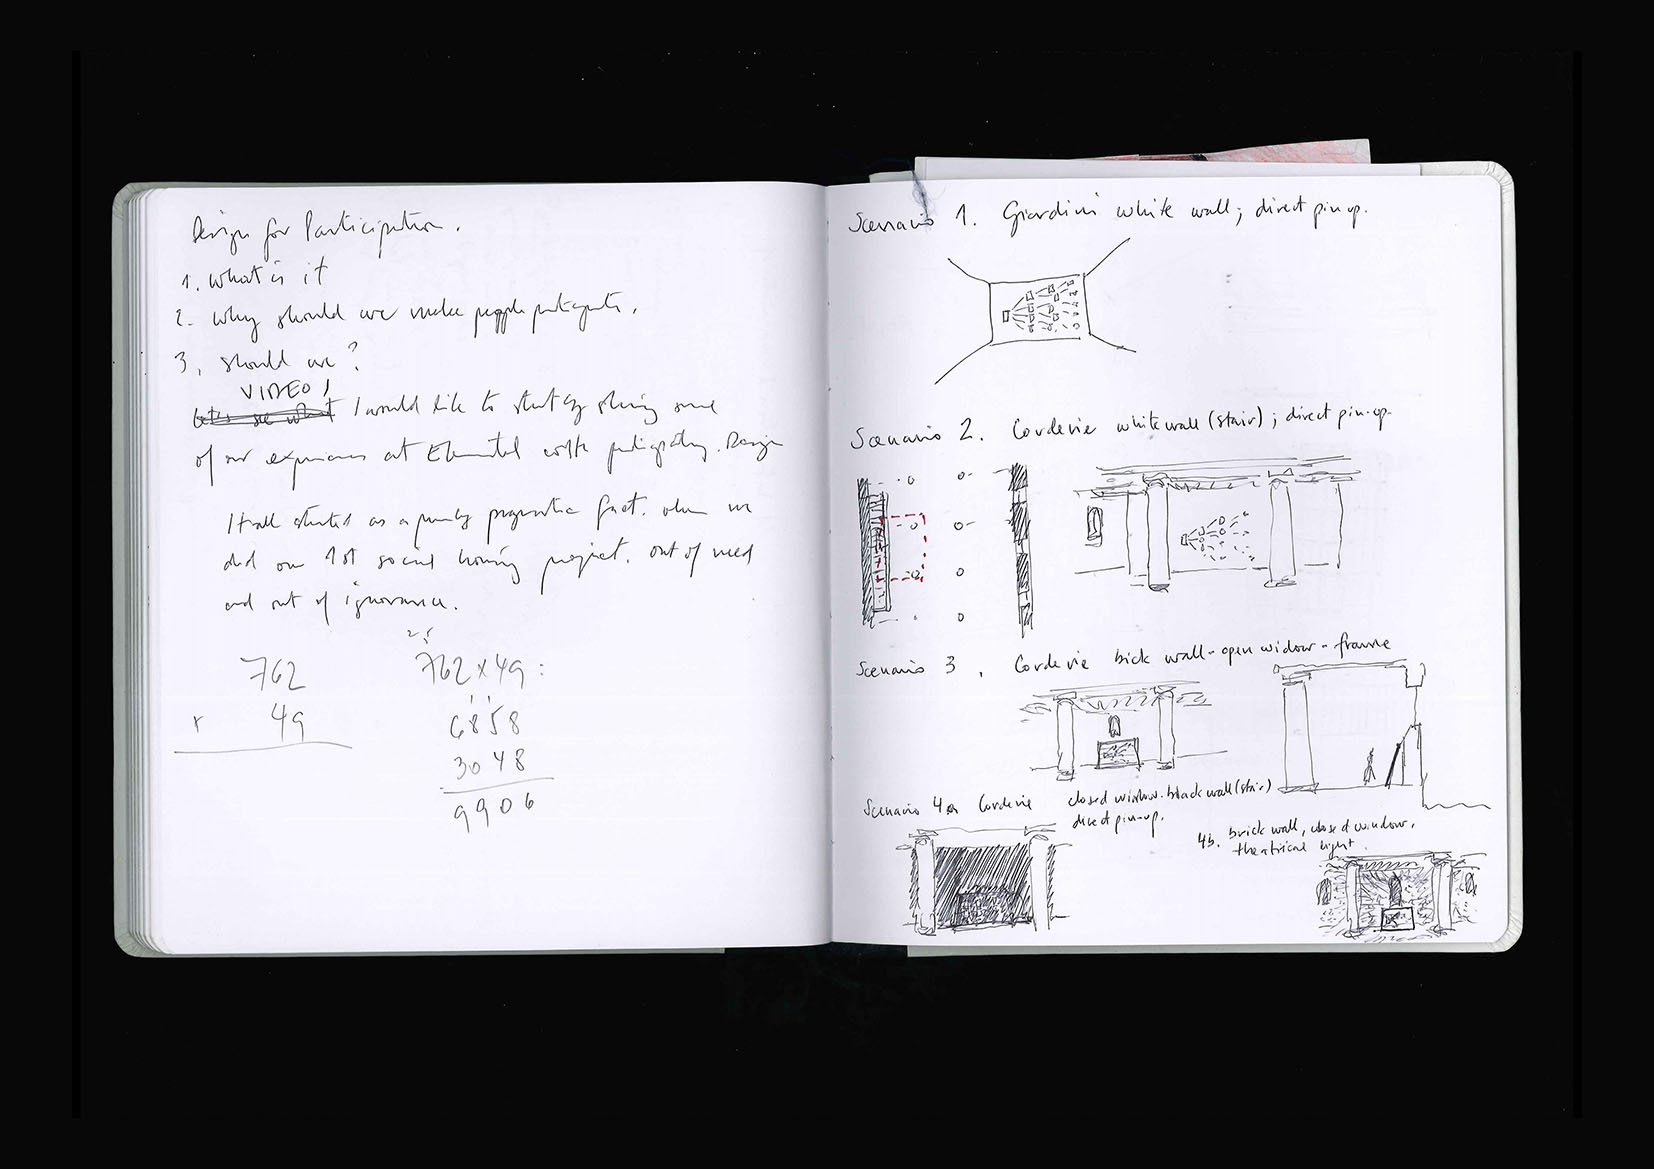 Design for Participation.
1. What is it
2. Why should we make people participate.
3. Should we?
VIDEO!
I would like to start by sharing some
of our experiences at Elemental with participatory. Design
It all started as a purely pragmatic fact. when we
did our 1st social housing project. out of need
and out of ignorance.
762
x 49
2,5
762 x 49 :
6858
3048
9906
Scenario 1. Giardini white wall; direct pin up.
Scenario 2. Corderie white wall (stair); direct pin-up.
Scenario 3. Corderie bick wall - open widow - frame
Scenario 4a Corderie closed window. black wall (stair)
direct pin-up.
4b. brick wall, closed window,
theatrical light.